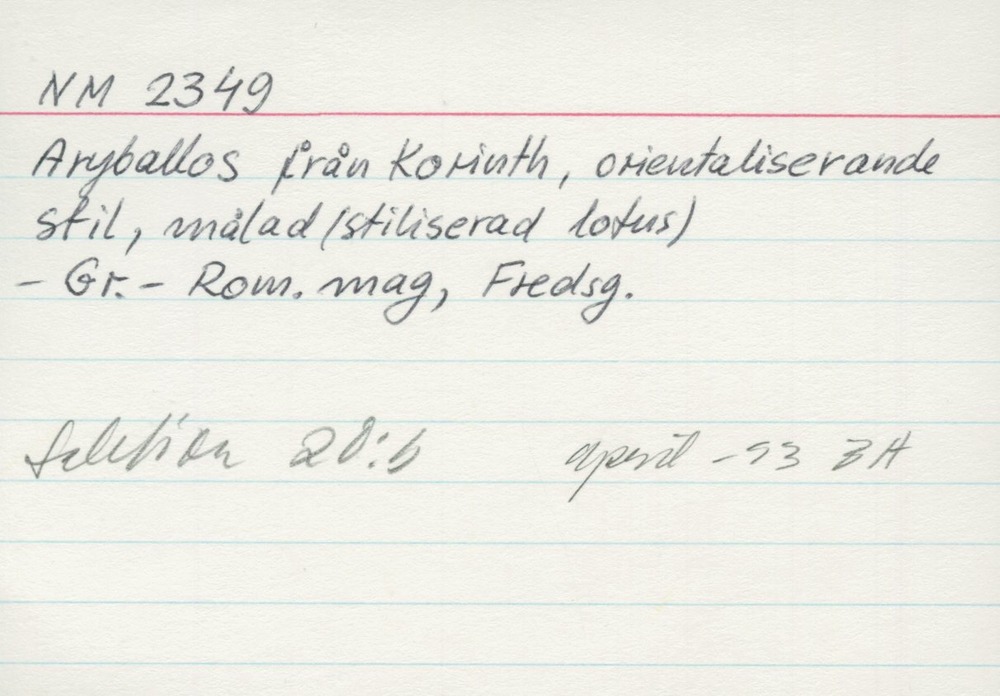 NM 2349
Aryballos från Korinth, orientaliserande
stil, målad (stiliserad lotus)
- Gr. - Rom. mag, Fredsg.
Sektion 20:6 april -93